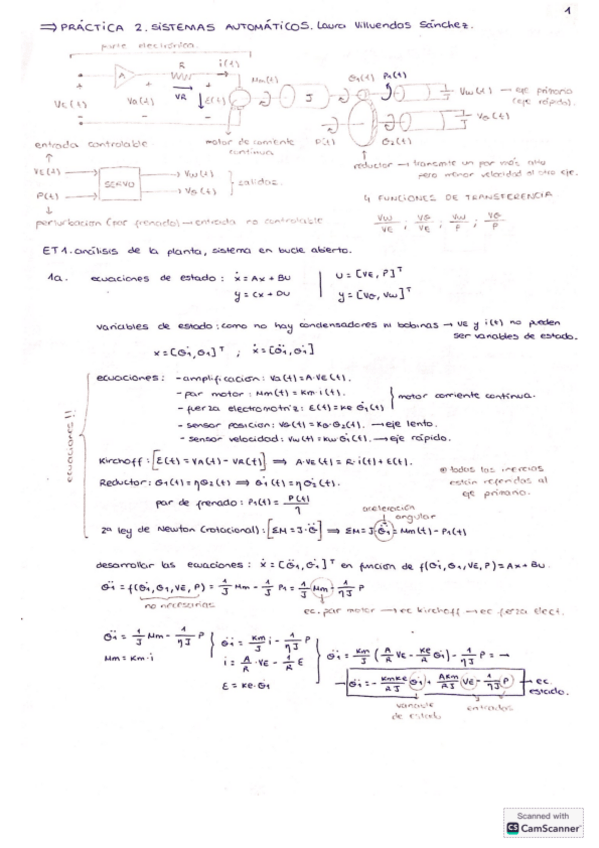 1
⇒ PRÁCTICA 2. SISTEMAS AUTOMÁTICOS. Laura Villuendas Sánchez.
parte electrónica.
R i(t)
A VR Mm(t) J θ1(t) P1(t) Vw(t) → eje primario (eje rápido).
Ve(t) Va(t) E(t) P(t) θ2(t) Vθ(t)
entrada controlable. motor de corriente continua. reductor → transmite un par más alto pero menor velocidad al otro eje.
VE(t) → SERVO → Vw(t)
P(t) → → Vθ(t) } salidas.
4 FUNCIONES DE TRANSFERENCIA
Vw/VE ; Vθ/VE ; Vw/P ; Vθ/P
perturbación (par frenado) → entrada no controlable
ET1. análisis de la planta, sistema en bucle abierto.
1a. ecuaciones de estado: ẋ = Ax + Bu | u = [VE, P]ᵀ
y = Cx + Du | y = [Vθ, Vw]ᵀ
variables de estado: como no hay condensadores ni bobinas → VE y i(t) no pueden
ser variables de estado.
x = [θ̇1, θ1]ᵀ ; ẋ = [θ̈1, θ̇1]
ecuaciones!!
ecuaciones: - amplificación: Va(t) = A·VE(t).
- par motor: Mm(t) = Km·i(t).
- fuerza electromotriz: E(t) = Ke θ̇1(t) } motor corriente continua.
- sensor posición: Vθ(t) = Kθ·θ2(t). → eje lento.
- sensor velocidad: Vw(t) = Kw θ̇1(t). → eje rápido.
Kirchoff: [E(t) = VA(t) - VR(t)] ⇒ A·VE(t) = R·i(t) + E(t).
Reductor: θ1(t) = ηθ2(t) ⇒ θ̇1(t) = ηθ̇2(t).
⊛ todas las inercias están referidas al eje primario.
par de frenado: P1(t) = P(t)/η
aceleración angular
2ª ley de Newton (rotacional): [ΣM = J·θ̈] ⇒ ΣM = J·θ̈1 = Mm(t) - P1(t)
desarrollar las ecuaciones: ẋ = [θ̈1, θ̇1]ᵀ en función de f(θ̇1, θ1, VE, P) = Ax + Bu.
θ̈1 = f(θ̇1, θ1, VE, P) = 1/J Mm - 1/J P1 = 1/J Mm - 1/ηJ P
no necesarias
ec. par motor → ec Kirchoff → ec fuerza elect.
θ̈1 = 1/J Mm - 1/ηJ P
Mm = Km·i
θ̈1 = Km/J i - 1/ηJ P
i = A/R · VE - 1/R E
E = Ke·θ̇1
θ̈1 = Km/J (A/R VE - Ke/R θ̇1) - 1/ηJ P = →
→ θ̈1 = - KmKe/RJ θ̇1 + AKm/RJ VE - 1/ηJ P → ec. estado.
variable de estado
entradas
Scanned with
CS CamScanner